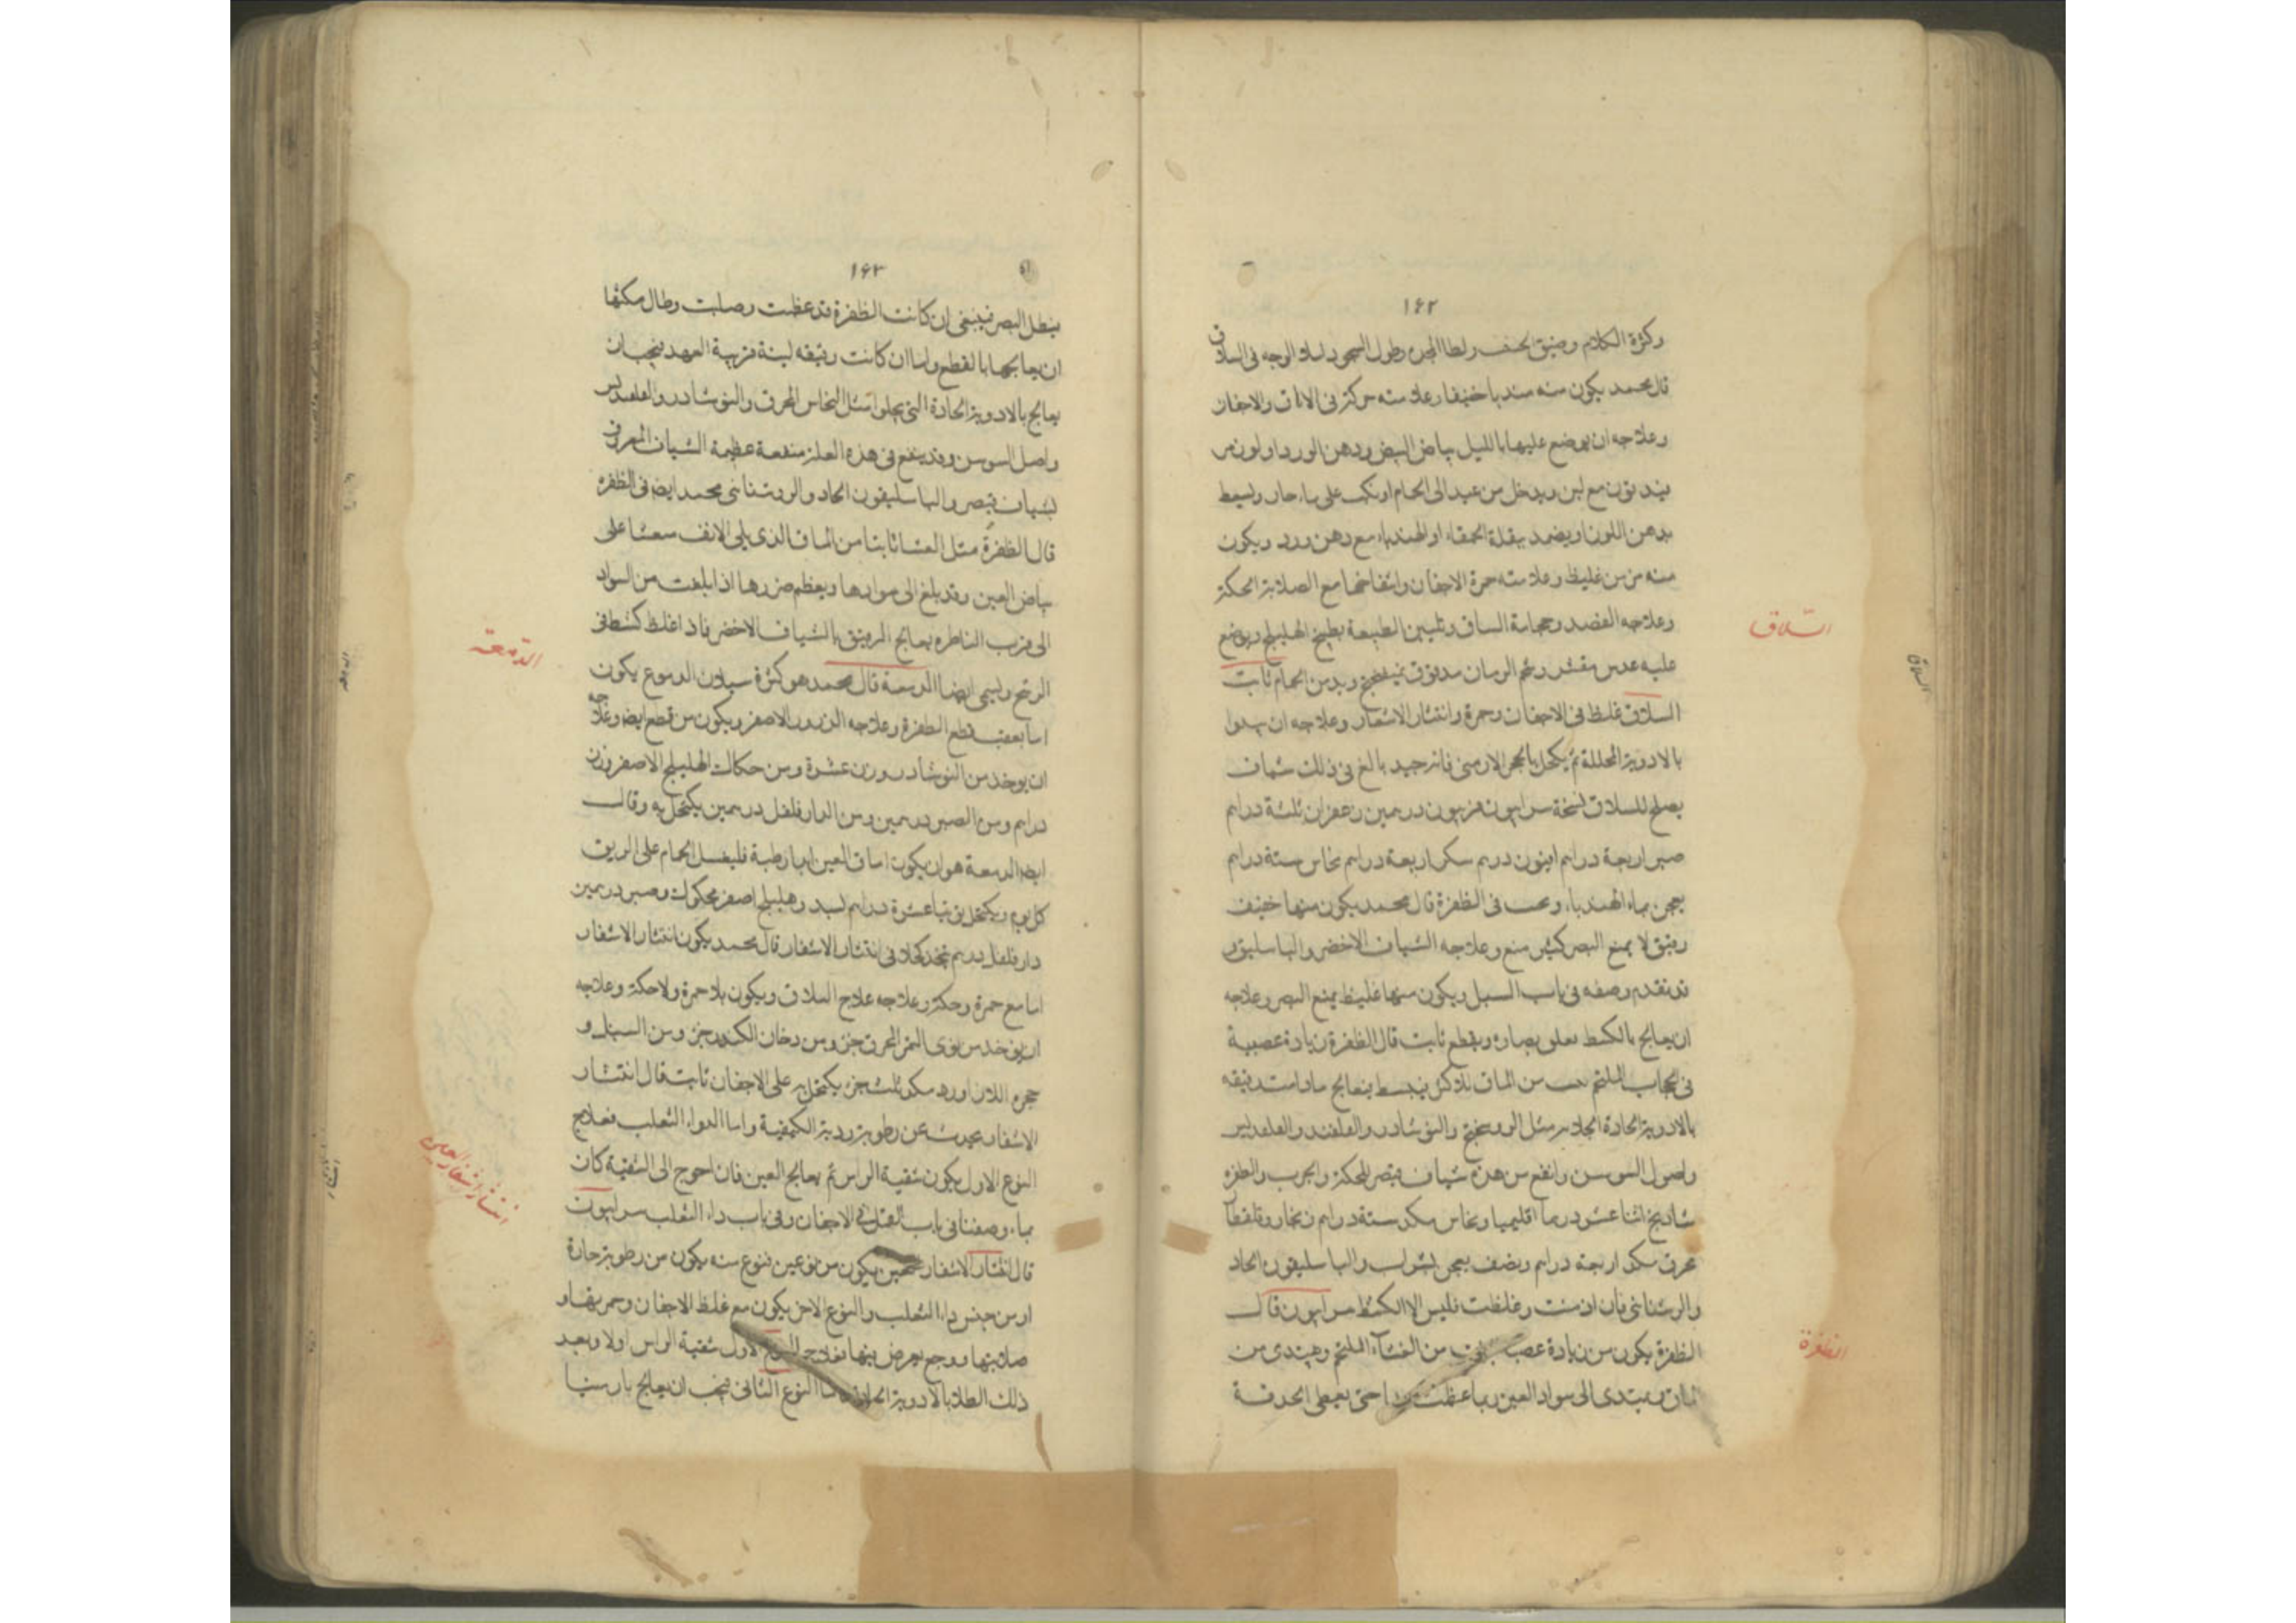 ١٦٢
وكثرة الكلام وضيق
قال محمد يكون منه مبتديا خفيفا وعلامته حركة في الاماق والاجفان
وعلاجه ان يوضع عليها بالليل بياض البيض ودهن الورد او
مع لبن ويدخل من غد الى الحمام او يكب على ماء حار ويسعط
بدهن اللوز او يضمد ببقلة الحمقاء او الهندباء مع دهن ورد ويكون
منه مزمن غليظ وعلامته حمرة الاجفان وانتفاخها مع الصلابة والحكة
وعلاجه الفصد وحجامة الساق وتليين الطبيعة بطبيخ الهليلج ويوضع
عليه عدس مقشر وشحم الرمان مدقوق ويدمن الحمام ثابت
السلاق غلظ في الاجفان وحمرة وانتثار الاشفار وعلاجه ان يبدوا
بالادوية المحللة ثم يكحل بالحجر الارمنى فانه جيد بالغ في ذلك شياف
يصلح للسلاق نسخة سرابيون درهمين زعفران ثلثة دراهم
صبر اربعة دراهم افيون درهم سكر اربعة دراهم نحاس ستة دراهم
يعجن بماء الهندباء في الظفرة قال محمد يكون منها خفيف
رقيق لا يمنع البصر كثير منع وعلاجه الشياف الاخضر والباسليقون
قد تقدم وصفه في باب السبل ويكون منها غليظ يمنع البصر وعلاجه
ان يعالج بالكشط ويقطع ثابت قال الظفرة زيادة عصبية
في الحجاب الملتحم من الماق
بالادوية الحادة الجلاية مثل الروسختج والنوشادر والقلقند والقلقديس
واصول السوسن وانفع من هذه شياف قيصر للحكة والجرب والظفرة
شاذنج اثنا عشر درهما اقليميا ونحاس ستة دراهم زنجار وقلقطار
محرق اربعة دراهم ونصف يعجن بشراب والباسليقون الحاد
والروشنائي فان ازمنت وغلظت فليس الا الكشط سرابيون قال
الظفرة يكون من زيادة عصب من الغشاء الملتحم ويبتدى من
الماق ويبتدى الى سواد العين ربما عظمت حتى يغطى الحدقة
السلاق
الظفرة
السلاق
١٦٣
يبطل البصر فينبغى ان كانت الظفرة قد عظمت وصلبت وطال مكثها
ان يعالجها بالقطع واما ان كانت رقيقة لينة قريبة العهد فيجب ان
يعالج بالادوية الحادة التي يجلوا مثل النحاس المحرق والنوشادر والقلقديس
واصل السوسن وقد ينفع في هذه العلة منفعة عظيمة الشياف المعروف
بشياف قيصر والباسليقون الحاد والروشنائي محمد ايضا في الظفرة
قال الظفرة مثل الغشا نابتا من الماق الذي يلى الانف على
بياض العين وقد يبلغ الى سوادها ويعظم ضررها اذا بلغت من السواد
الى قرب الناظره يعالج الرقيق بالشياف الاخضر فاذا غلظ كشط في
ويسمى ايضا الدمعة قال محمد هو كثرة سيلان الدموع يكون
اما بعقب قطع الظفرة وعلاجه الذرور الاصفر ويكون من قطع ايضا وعلاجه
ان يوخذ من النوشادر وزن عشرة ومن حكاك الهليلج الاصفر وزن
دراهم ومن الصبر درهمين ومن الدارفلفل درهمين يكتحل به وقال
ايضا الدمعة هو ان يكون اماق العين ابدا رطبة الحمام على الريق
كل يوم ويكتحل عشرة دراهم وهليلج اصفر محكوك وصبر درهمين
دارفلفل درهم يتخذ كحلا في انتثار الاشفار قال محمد يكون انتثار الاشفار
اما مع حمرة وحكة وعلاجه علاج السلاق ويكون بلا حمرة ولا حكة وعلاجه
ان يوخذ من نوى التمر المحرق جزء ومن دخان الكندر جزء ومن السنبل و
حجر اللازورد ثلث جزء يكتحل به على الاجفان ثابت قال انتثار
الاشفار يحدث عن رطوبة ردية الكيفية واما الدواء الثعلب فعلاج
النوع الاول يكون بنقية الراس ثم يعالج العين فان احوج الى التنقية كان
بماء وصفنا في باب القمل في الاجفان وفي باب داء الثعلب سرابيون
قال انتثار الاشفار يكون من نوعين فنوع منه يكون من رطوبة حارة
او من جنس داء الثعلب والنوع الاخر يكون مع غلظ الاجفان وحمرتها و
صلابتها ووجع يعرض فيها فعلاج النوع الاول بنقية الراس اولا وبعد
ذلك الطلا بالادوية النوع الثاني فيجب ان يعالج بارسنيا
الدمعة
انتثار اشفار العين